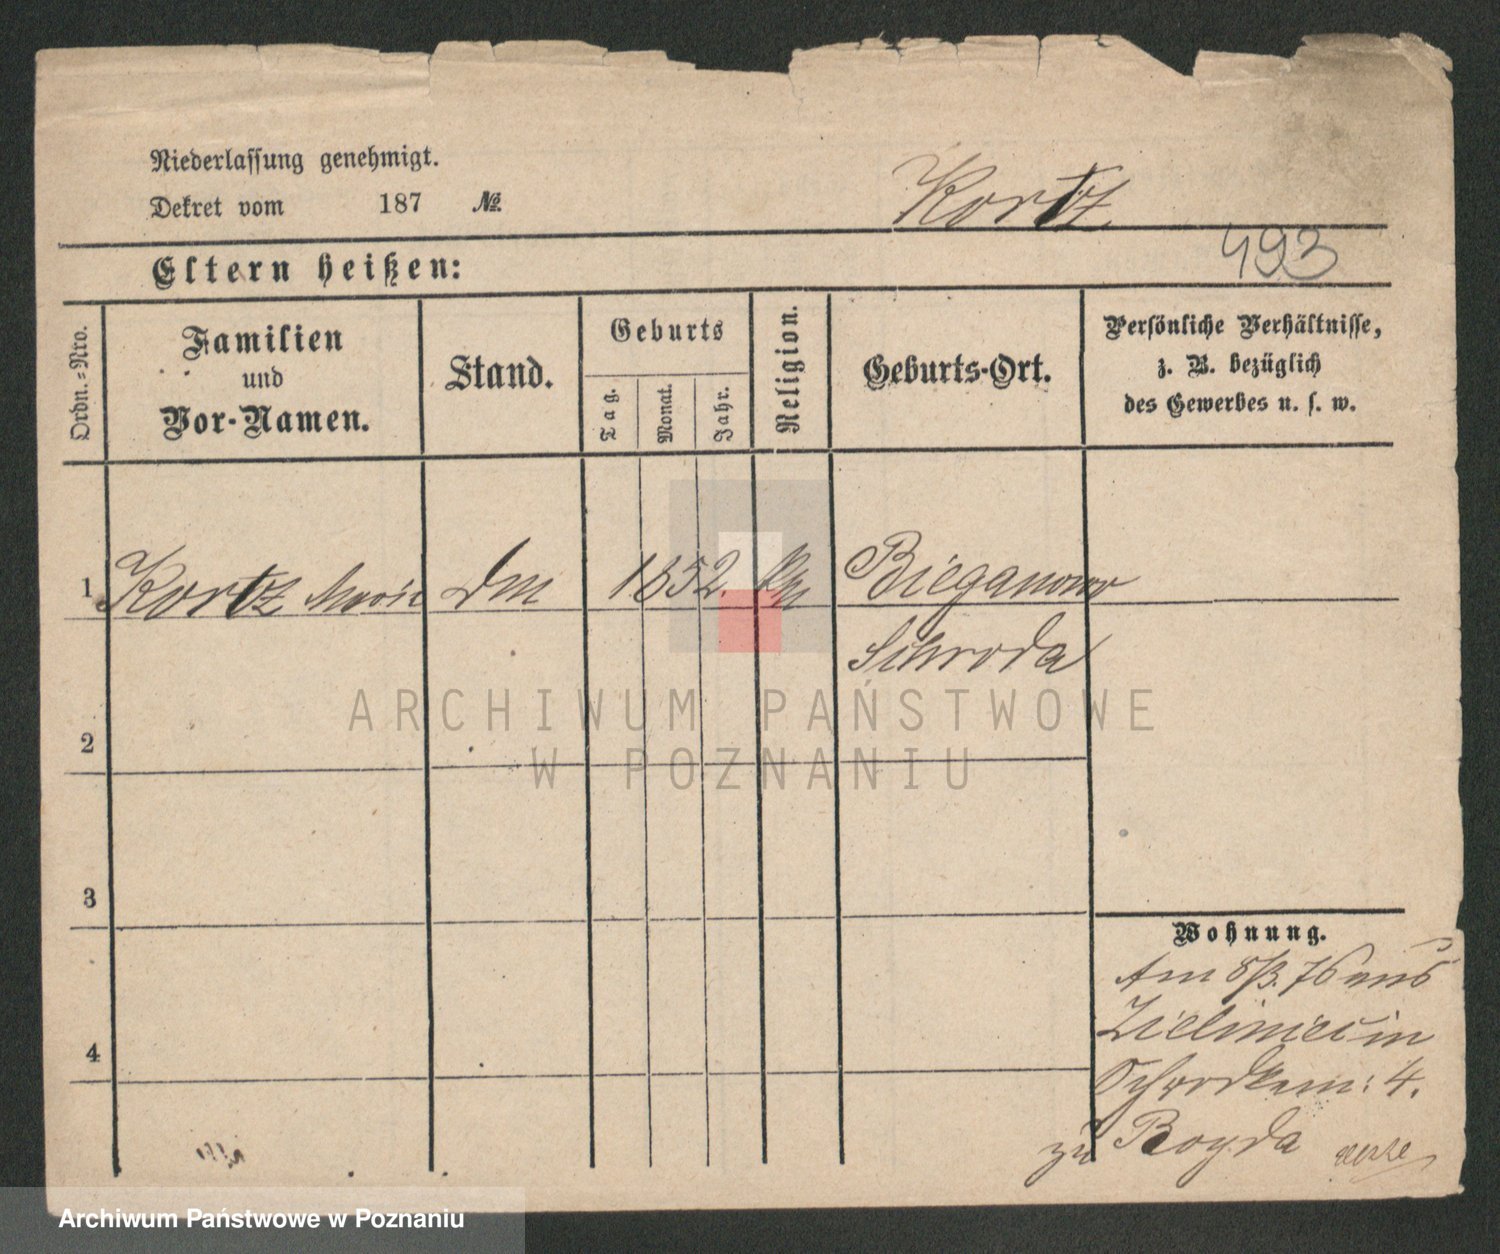 Niederlassung genehmigt.
Dekret vom 187 №.
Kortz
493
Eltern heißen:
Ordn.-Nro.
Familien
und
Vor-Namen.
Stand.
Geburts
Tag.
Monat.
Jahr.
Religion.
Geburts-Ort.
Persönliche Verhältnisse,
z. B. bezüglich
des Gewerbes u. s. w.
1 Kortz Marie 1852. Bieganowo
Schroda
2
3
4
Wohnung.
Am 8/3. 76 aus
Zieliniec in
4.
zu Boyda
ARCHIWUM PAŃSTWOWE
W POZNANIU
Archiwum Państwowe w Poznaniu